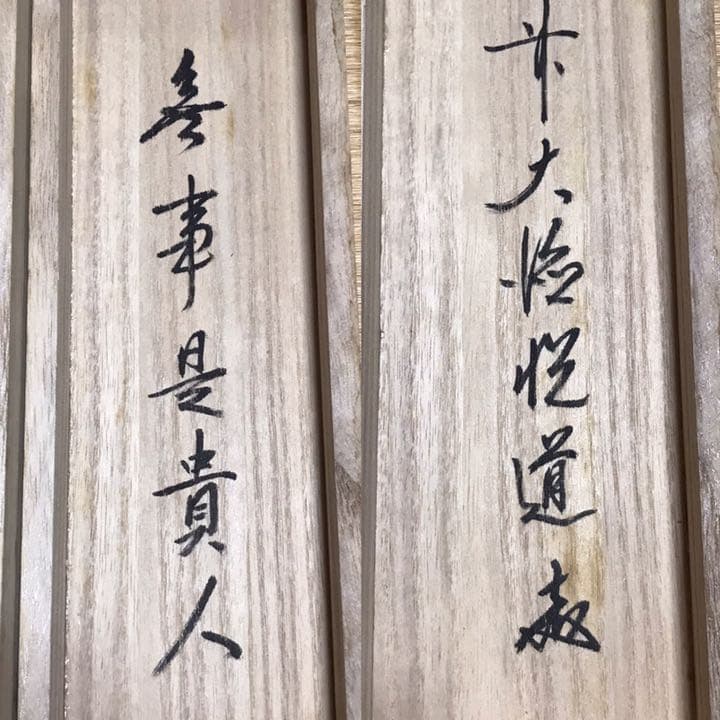 無事是貴人
前大徳悦道